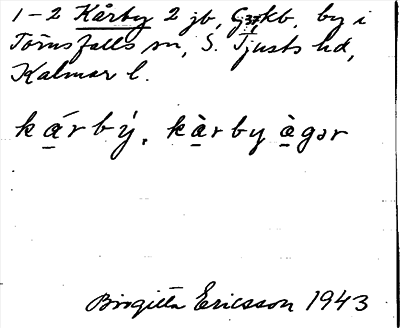 1-2 Kårby 2 jb, Gxkb, by i
Törnsfalls sn, S. Tjusts hd,
Kalmar l.
ká̲rbý, kà̲rby à̲gər
Birgitta Ericsson 1943